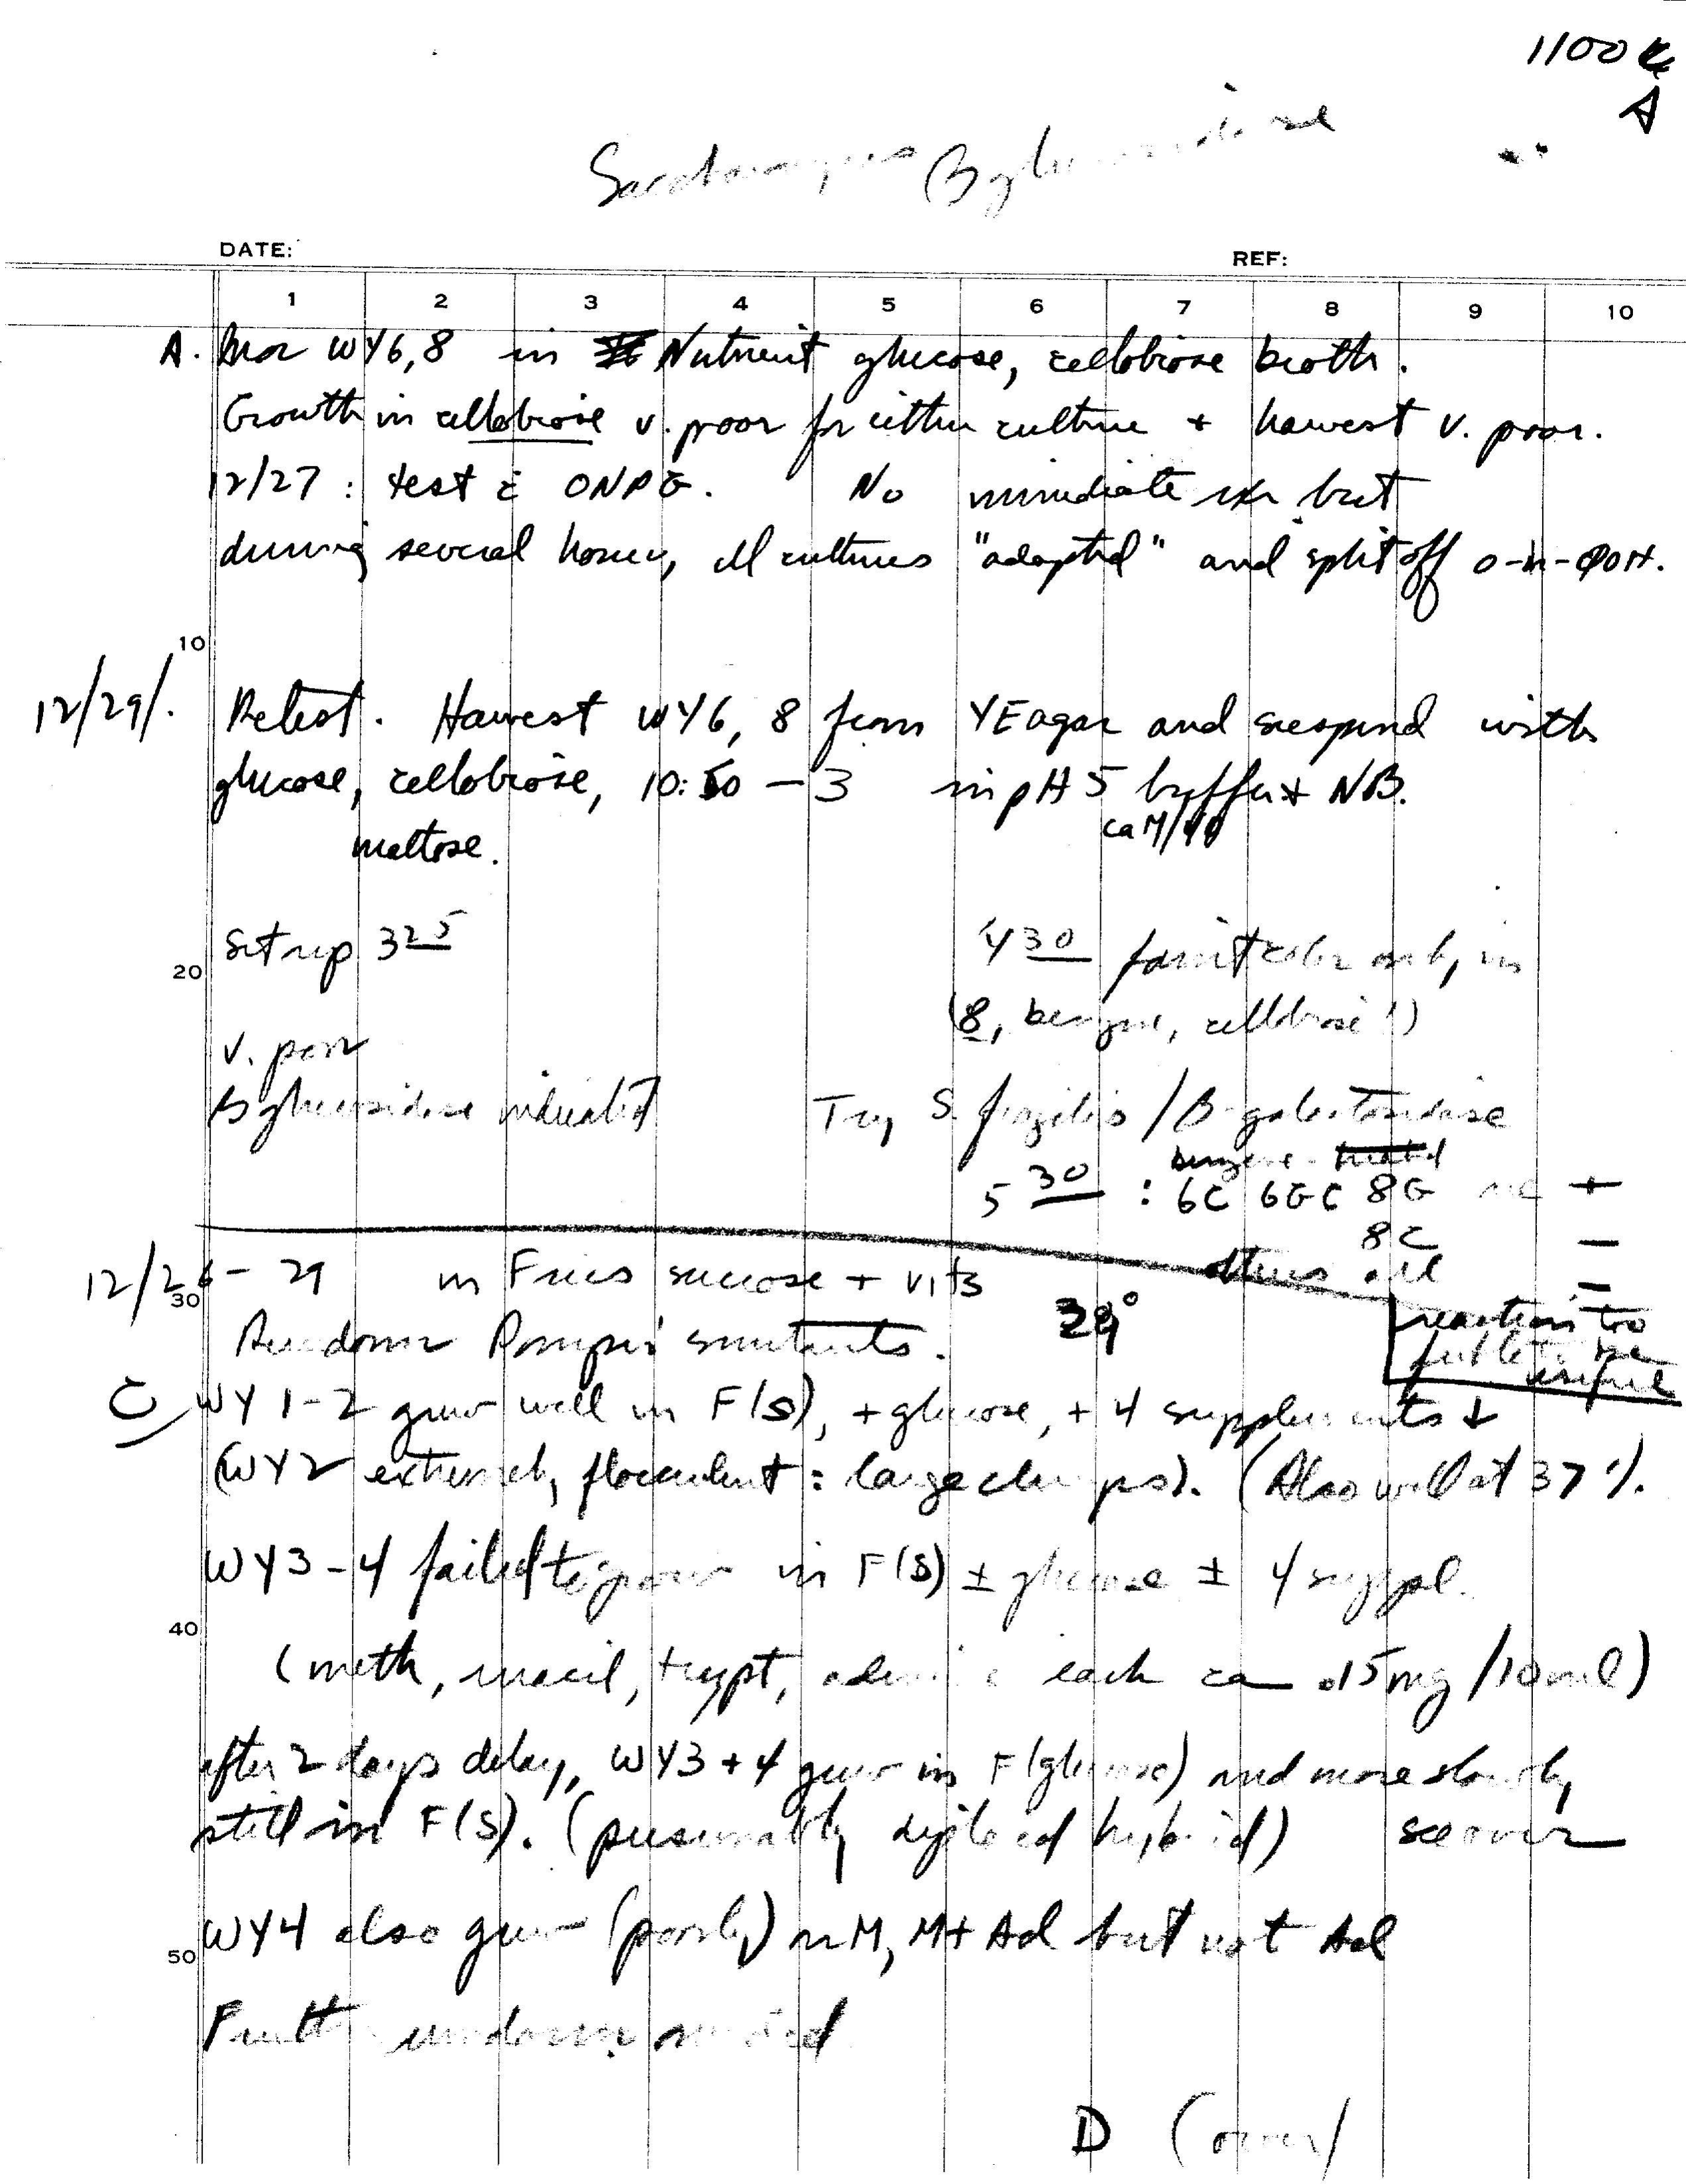 1100
A
Saccharomyces β glucosidase
DATE: REF:
1 2 3 4 5 6 7 8 9 10
A. WY6,8 in Nutrient glucose, cellobiose broth.
Growth in cellobiose v. poor for either culture + harvest v. poor.
12/27 : test c̄ ONPG. No immediate but
during several hours, all cultures "adapted" and split off o-n-ΦOH.
10
12/29/. Retest. Harvest WY6, 8 from YE agar and suspend with
glucose, cellobiose, 10:50 — 3 in pH 5 buffer + NB.
maltose. ca M/
Set up 3 25 4 30 faint color only in
20
(8, benzene, cellobiose!)
v. poor
β glucosidase indicated Try S. fragilis / β-galactosidase
5 30 : 6C 6GC 8G are +
8C —
others all —
12/26 - 29 in Fries sucrose + vits
30
29°
reaction too
feeble to be
useful
Random Pomper mutants.
C WY 1-2 grew well in F(S), + glucose, + 4 supplements +
(WY2 extremely flocculent : large clumps). (Also well at 37°).
WY3-4 failed to grow in F(S) ± glucose ± 4 suppl.
40
(meth, uracil, trypt, adenine each ca .15mg/10ml)
after 2 days delay, WY3 + 4 grew in F(glucose) and more slowly
still in F(S). (presumably diploid hybrid) see over
WY4 also grew (poorly) in M, M + Ad but not Ad
50
D (over)